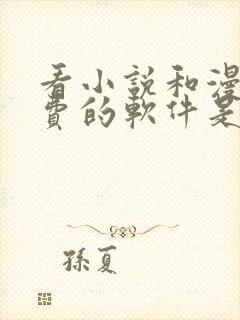 看小說和漫
費的軟件是
孫夏